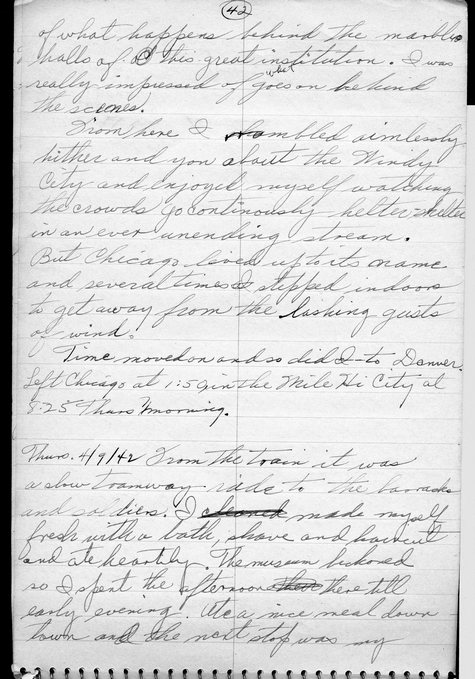 42
of what happens behind the marble
halls of this great institution. I was
really impressed of what goes on behind
the scenes.
From here I ambled aimlessly
hither and yon about the Windy
City and enjoyed myself watching
the crowds go continously helter-skelter
in an ever unending stream.
But Chicago lived up to its name
and several times I stepped indoors
to get away from the lashing gusts
of wind.
Time moved on and so did I - to Denver.
Left Chicago at 1:59 in the Mile Hi City at
8:25 Thurs morning.
Thurs. 4/9/42 From the train it was
a slow tramway ride to the barracks
and soldiers. I cleaned made myself
fresh with a bath, shave and haircut
and ate heartily. The museum beckoned
so I spent the afternoon there till
early evening. Ate a nice meal down
town and the next stop was my